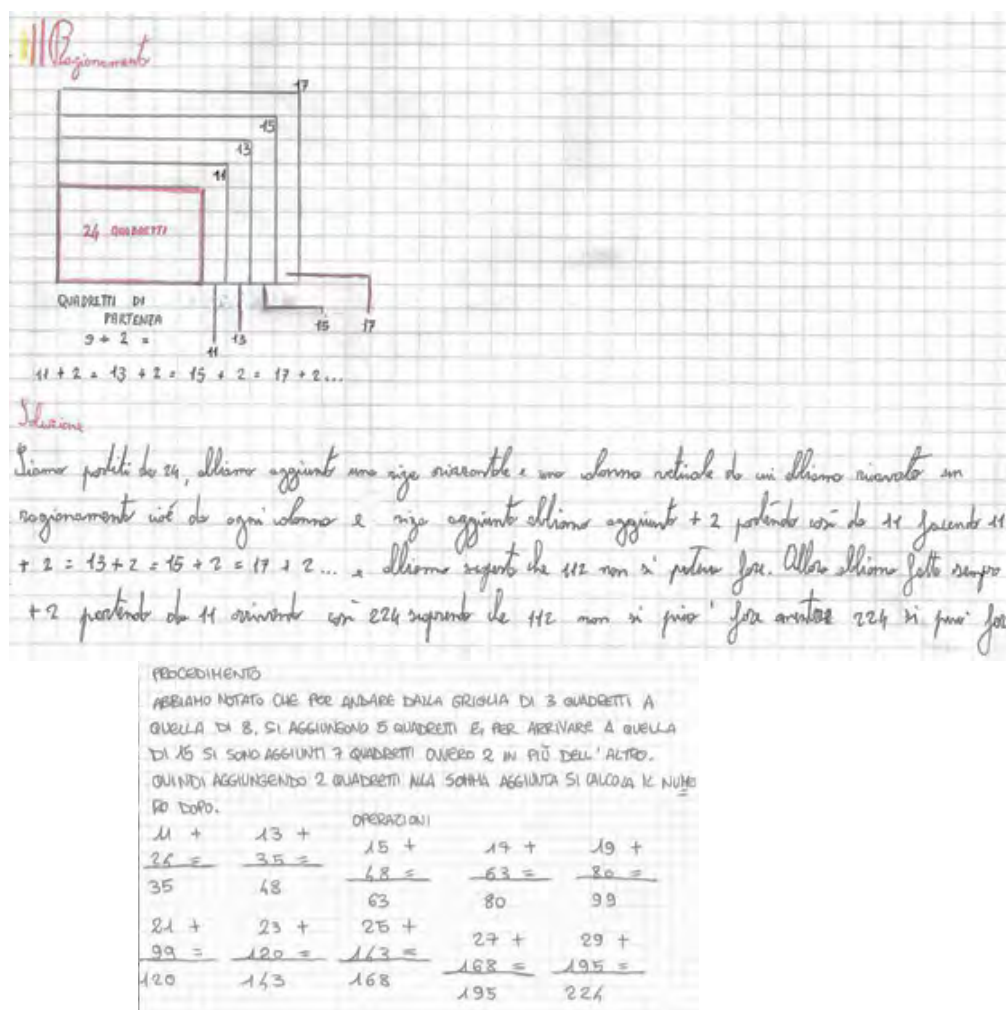 Il Ragionamento
17
15
13
11
24 QUADRETTI
QUADRETTI DI
PARTENZA
9 + 2 =
11
13
15
17
11 + 2 = 13 + 2 = 15 + 2 = 17 + 2...
Soluzione
Siamo partiti da 24, abbiamo aggiunto una riga orizzontale e una colonna verticale da cui abbiamo ricavato un
ragionamento cioé da ogni colonna e riga aggiunta abbiamo aggiunto + 2 partendo così da 11 facendo 11
+ 2 = 13 + 2 = 15 + 2 = 17 + 2... e abbiamo scoperto che 112 non si poteva fare. Allora abbiamo fatto sempre
+ 2 partendo da 11 arrivando così 224 scoprendo che 112 non si può fare mentre 224 si può fare
PROCEDIMENTO
ABBIAMO NOTATO CHE PER ANDARE DALLA GRIGLIA DI 3 QUADRETTI A
QUELLA DI 8, SI AGGIUNGONO 5 QUADRETTI E, PER ARRIVARE A QUELLA
DI 15 SI SONO AGGIUNTI 7 QUADRETTI OVVERO 2 IN PIÙ DELL'ALTRO.
QUINDI AGGIUNGENDO 2 QUADRETTI ALLA SOMMA AGGIUNTA SI CALCOLA IL NUME
RO DOPO.
OPERAZIONI
11 + 13 + 15 + 17 + 19 +
24 = 35 = 48 = 63 = 80 =
35 48 63 80 99
21 + 23 + 25 + 27 + 29 +
99 = 120 = 143 = 168 = 195 =
120 143 168 195 224